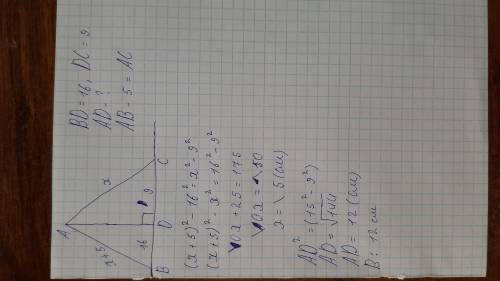 BD = 16, DC = 9
AD - ?
AB - 5 = AC
A
x+5
x
16
9
B
D
C
(x+5)² - 16² = x² - 9²
(x+5)² - x² = 16² - 9²
10x + 25 = 175
10x = 150
x = 15 (см)
AD² = (15² - 9²)
AD = √144
AD = 12 (см)
В: 12 см